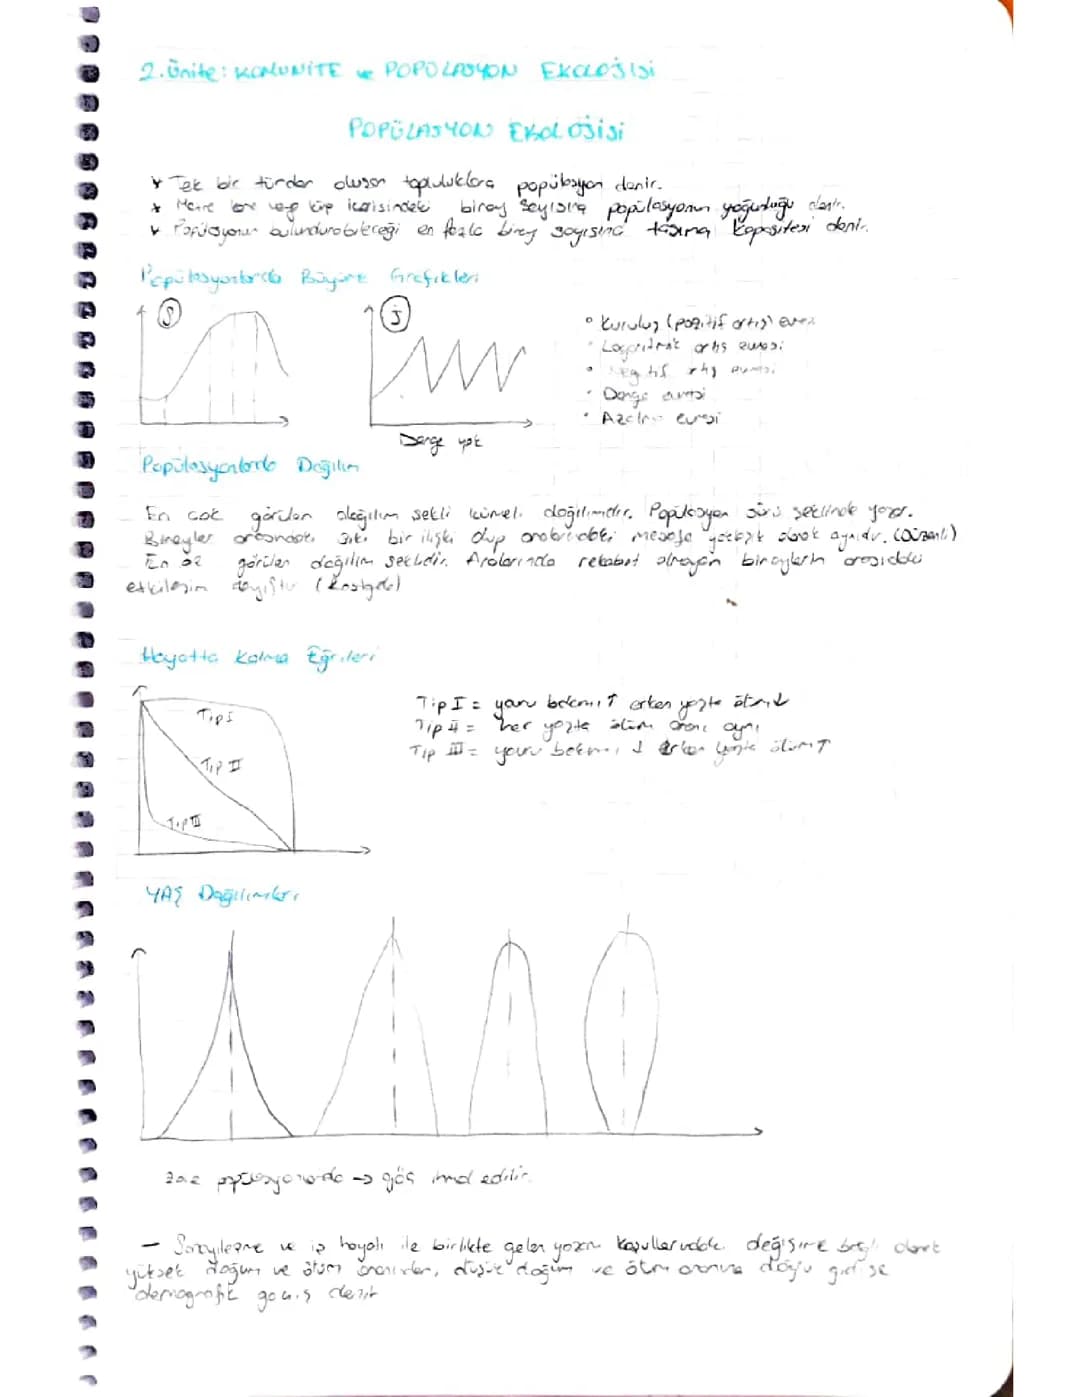 2. Ünite: KOMUNİTE ve POPÜLASYON EKOLOJİSİ
POPÜLASYON EKOLOJİSİ
Tek bir türden oluşan topluluklara popülasyon denir.
Metre kare veya küp içerisindeki birey sayısına popülasyonun yoğunluğu denir.
Popülasyonun bulundurabileceği en fazla birey sayısına taşıma kapasitesi denir.
Popülasyonlarda Büyüme Grafikleri
S
J
Kuruluş (pozitif artış) evresi
Logaritmik artış evresi
Negatif artış evresi
Denge evresi
Azalma evresi
Denge yok
Popülasyonlarda Dağılım
En çok görülen dağılım şekli kümeli dağılımdır. Popülasyon sürü şeklinde yaşar.
Bireyler arasındaki sıkı bir ilişki olup aralarındaki mesafe yaklaşık olarak aynıdır. (Düzenli)
En az görülen dağılım şeklidir. Aralarında rekabet olmayan bireylerin arasındaki
etkileşim (Rastgele)
Hayatta Kalma Eğrileri
Tip I
Tip II
Tip III
Tip I = yavru bakımı ↑ erken yaşta ölüm ↓
Tip II = her yaşta ölüm oranı aynı
Tip III = yavru bakımı ↓ erken yaşta ölüm ↑
YAŞ Dağılımları
popülasyonlarda → göç ihmal edilir.
— Sanayileşme ve iş hayatı ile birlikte gelen yaşam koşullarındaki değişime bağlı olarak
yüksek doğum ve ölüm oranından, düşük doğum ve ölüm oranına doğru gidişe
demografik geçiş denir